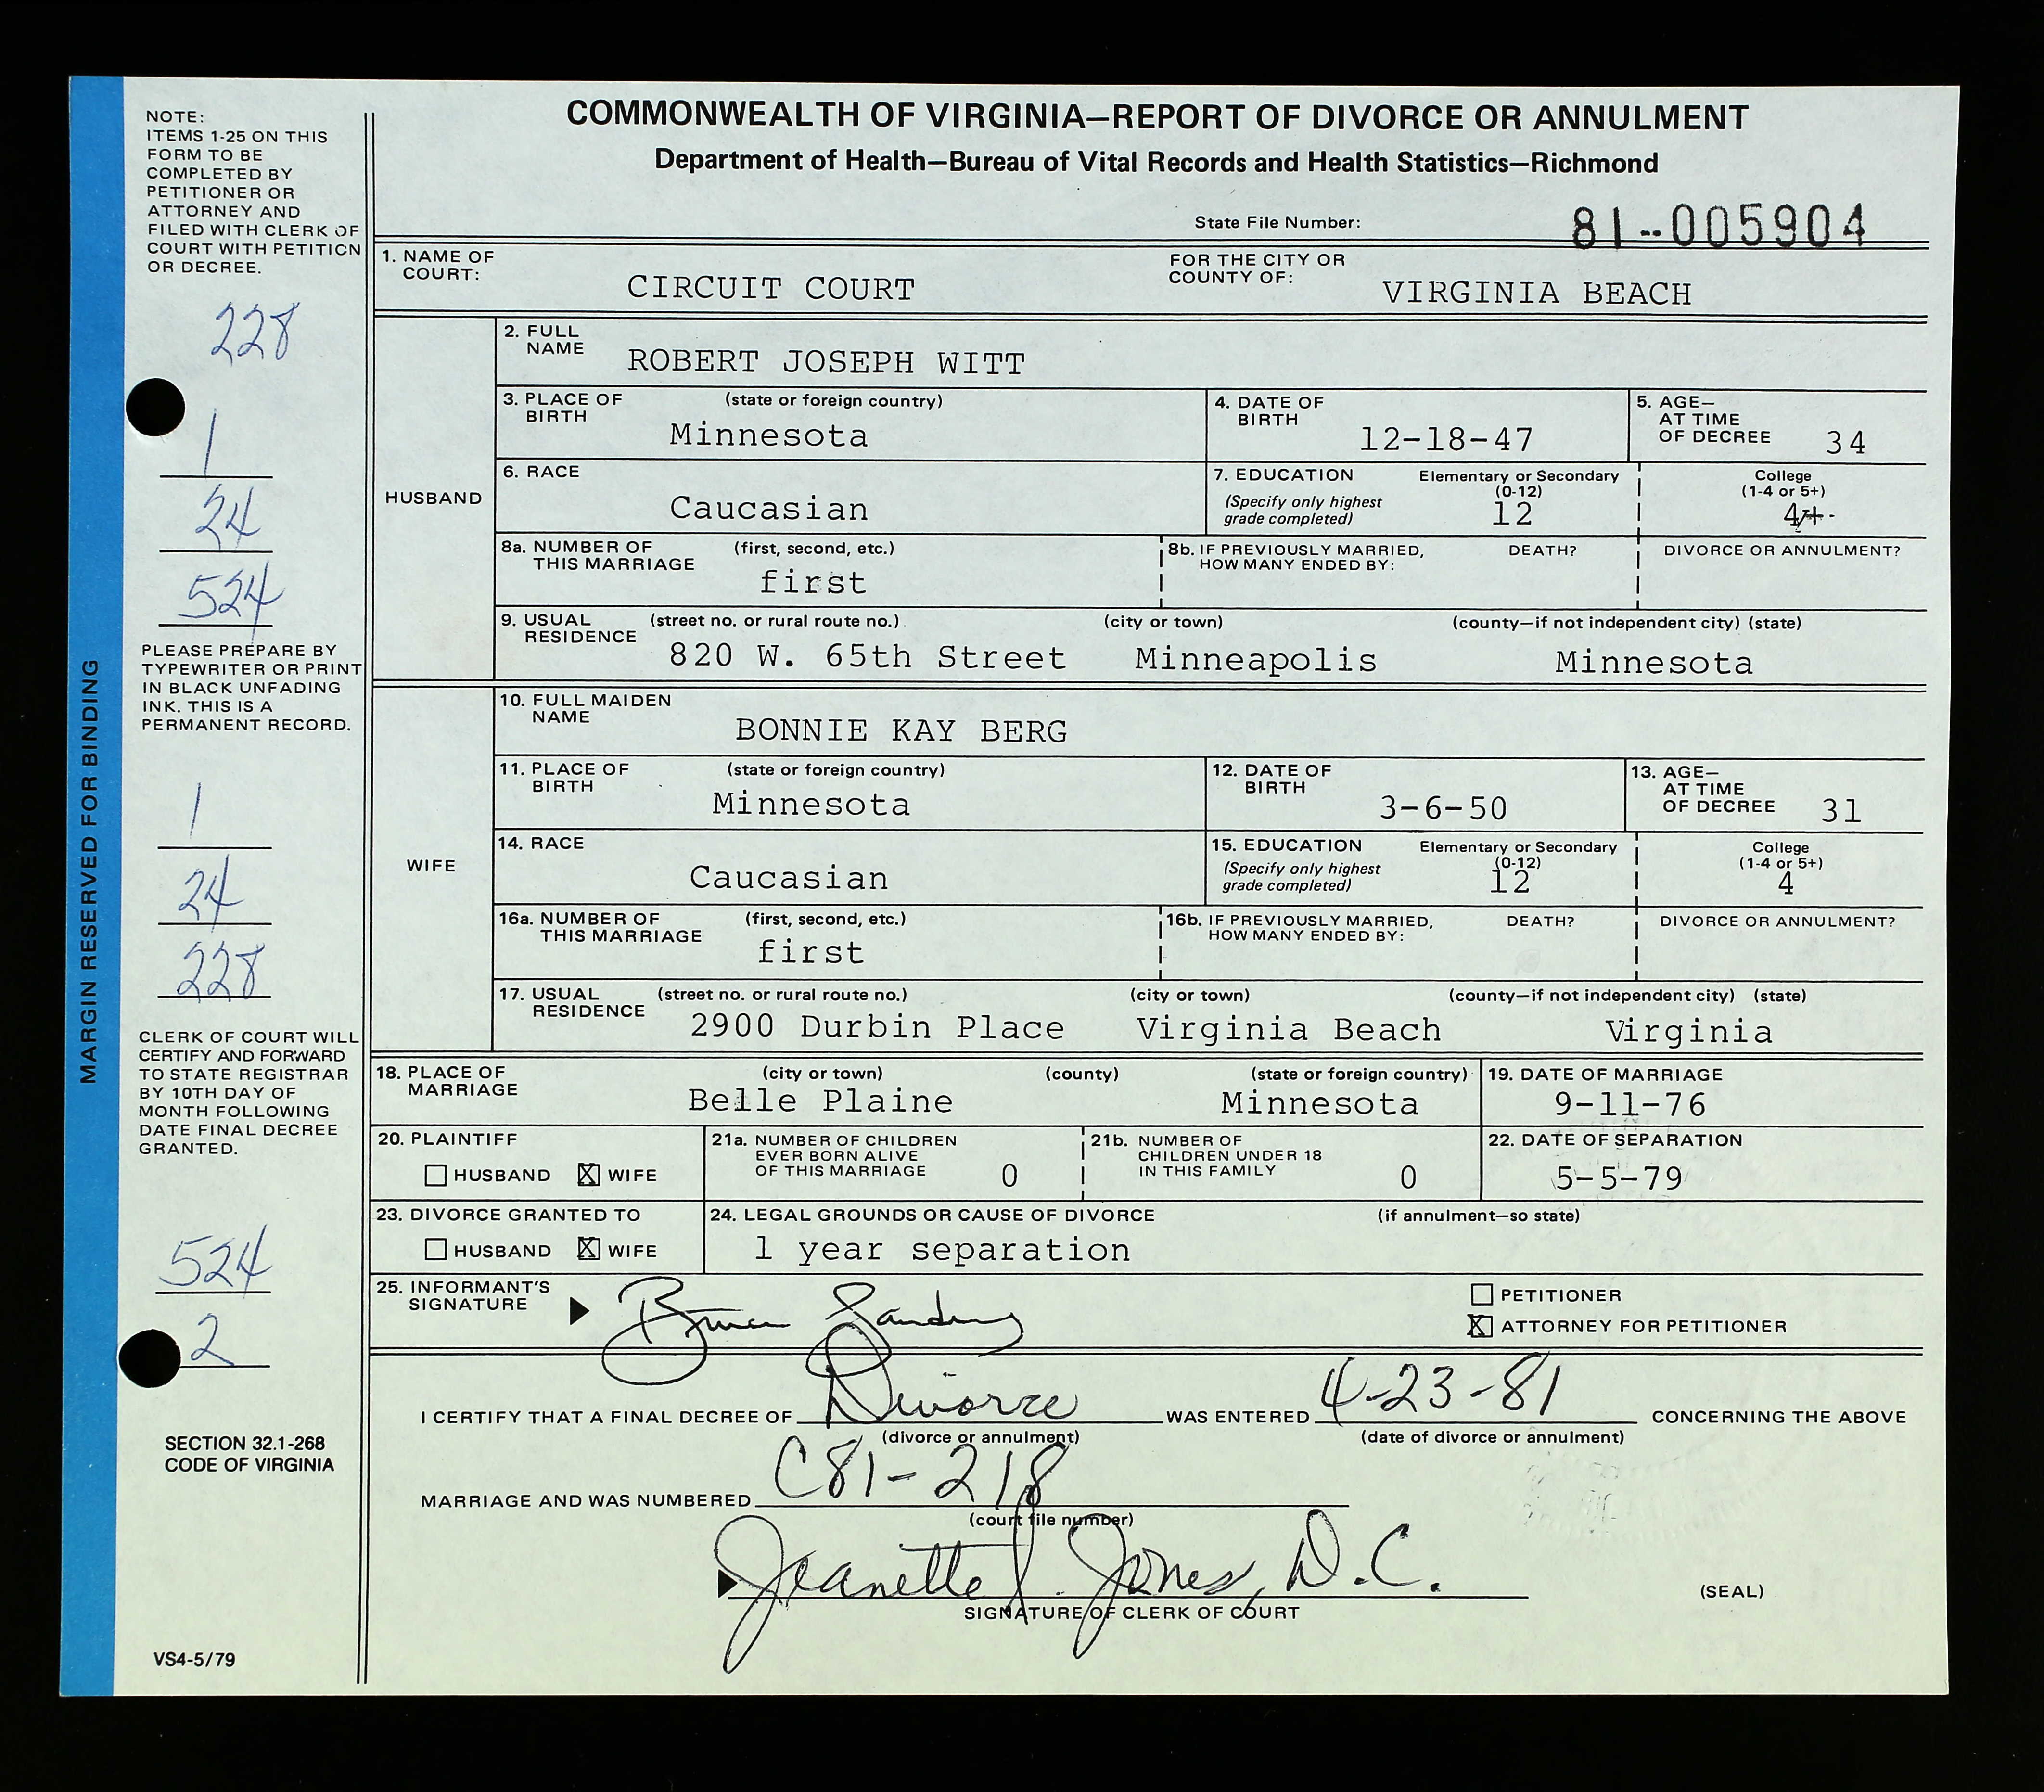 COMMONWEALTH OF VIRGINIA—REPORT OF DIVORCE OR ANNULMENT
Department of Health—Bureau of Vital Records and Health Statistics—Richmond
State File Number: 81-005904
NOTE:
ITEMS 1-25 ON THIS
FORM TO BE
COMPLETED BY
PETITIONER OR
ATTORNEY AND
FILED WITH CLERK OF
COURT WITH PETITION
OR DECREE.
228
1
24
524
PLEASE PREPARE BY
TYPEWRITER OR PRINT
IN BLACK UNFADING
INK. THIS IS A
PERMANENT RECORD.
1
24
228
CLERK OF COURT WILL
CERTIFY AND FORWARD
TO STATE REGISTRAR
BY 10TH DAY OF
MONTH FOLLOWING
DATE FINAL DECREE
GRANTED.
524
2
SECTION 32.1-268
CODE OF VIRGINIA
VS4-5/79
MARGIN RESERVED FOR BINDING
1. NAME OF COURT: CIRCUIT COURT FOR THE CITY OR COUNTY OF: VIRGINIA BEACH
HUSBAND
2. FULL NAME ROBERT JOSEPH WITT
3. PLACE OF BIRTH (state or foreign country) Minnesota 4. DATE OF BIRTH 12-18-47 5. AGE— AT TIME OF DECREE 34
6. RACE Caucasian 7. EDUCATION (Specify only highest grade completed) Elementary or Secondary (0-12) 12 College (1-4 or 5+) 4+
8a. NUMBER OF THIS MARRIAGE (first, second, etc.) first 8b. IF PREVIOUSLY MARRIED, HOW MANY ENDED BY: DEATH? DIVORCE OR ANNULMENT?
9. USUAL RESIDENCE (street no. or rural route no.) (city or town) (county—if not independent city) (state)
820 W. 65th Street Minneapolis Minnesota
WIFE
10. FULL MAIDEN NAME BONNIE KAY BERG
11. PLACE OF BIRTH (state or foreign country) Minnesota 12. DATE OF BIRTH 3-6-50 13. AGE— AT TIME OF DECREE 31
14. RACE Caucasian 15. EDUCATION (Specify only highest grade completed) Elementary or Secondary (0-12) 12 College (1-4 or 5+) 4
16a. NUMBER OF THIS MARRIAGE (first, second, etc.) first 16b. IF PREVIOUSLY MARRIED, HOW MANY ENDED BY: DEATH? DIVORCE OR ANNULMENT?
17. USUAL RESIDENCE (street no. or rural route no.) (city or town) (county—if not independent city) (state)
2900 Durbin Place Virginia Beach Virginia
18. PLACE OF MARRIAGE (city or town) (county) (state or foreign country) 19. DATE OF MARRIAGE
Belle Plaine Minnesota 9-11-76
20. PLAINTIFF HUSBAND X WIFE 21a. NUMBER OF CHILDREN EVER BORN ALIVE OF THIS MARRIAGE 0 21b. NUMBER OF CHILDREN UNDER 18 IN THIS FAMILY 0 22. DATE OF SEPARATION 5-5-79
23. DIVORCE GRANTED TO HUSBAND X WIFE 24. LEGAL GROUNDS OR CAUSE OF DIVORCE (if annulment—so state)
1 year separation
25. INFORMANT'S SIGNATURE PETITIONER
X ATTORNEY FOR PETITIONER
I CERTIFY THAT A FINAL DECREE OF Divorce WAS ENTERED 4-23-81 CONCERNING THE ABOVE
(divorce or annulment) (date of divorce or annulment)
MARRIAGE AND WAS NUMBERED C81-218
(court file number)
Jeanette J. Jones, D.C.
SIGNATURE OF CLERK OF COURT (SEAL)